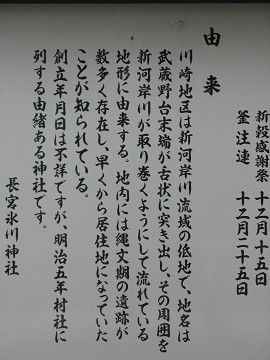 新穀感謝祭 十二月十五日
釜注連 十二月二十五日
由来
川崎地区は新河岸川流域の低地で、地名は
武蔵野台末端が舌状に突き出し、その周囲を
新河岸川が取り巻くようにして流れている
地形に由来する。地内には縄文期の遺跡が
数多く存在し、早くから居住地になっていた
ことが知られている。
創立年月日は不詳ですが、明治五年村社に
列する由緒ある神社です。
長宮氷川神社